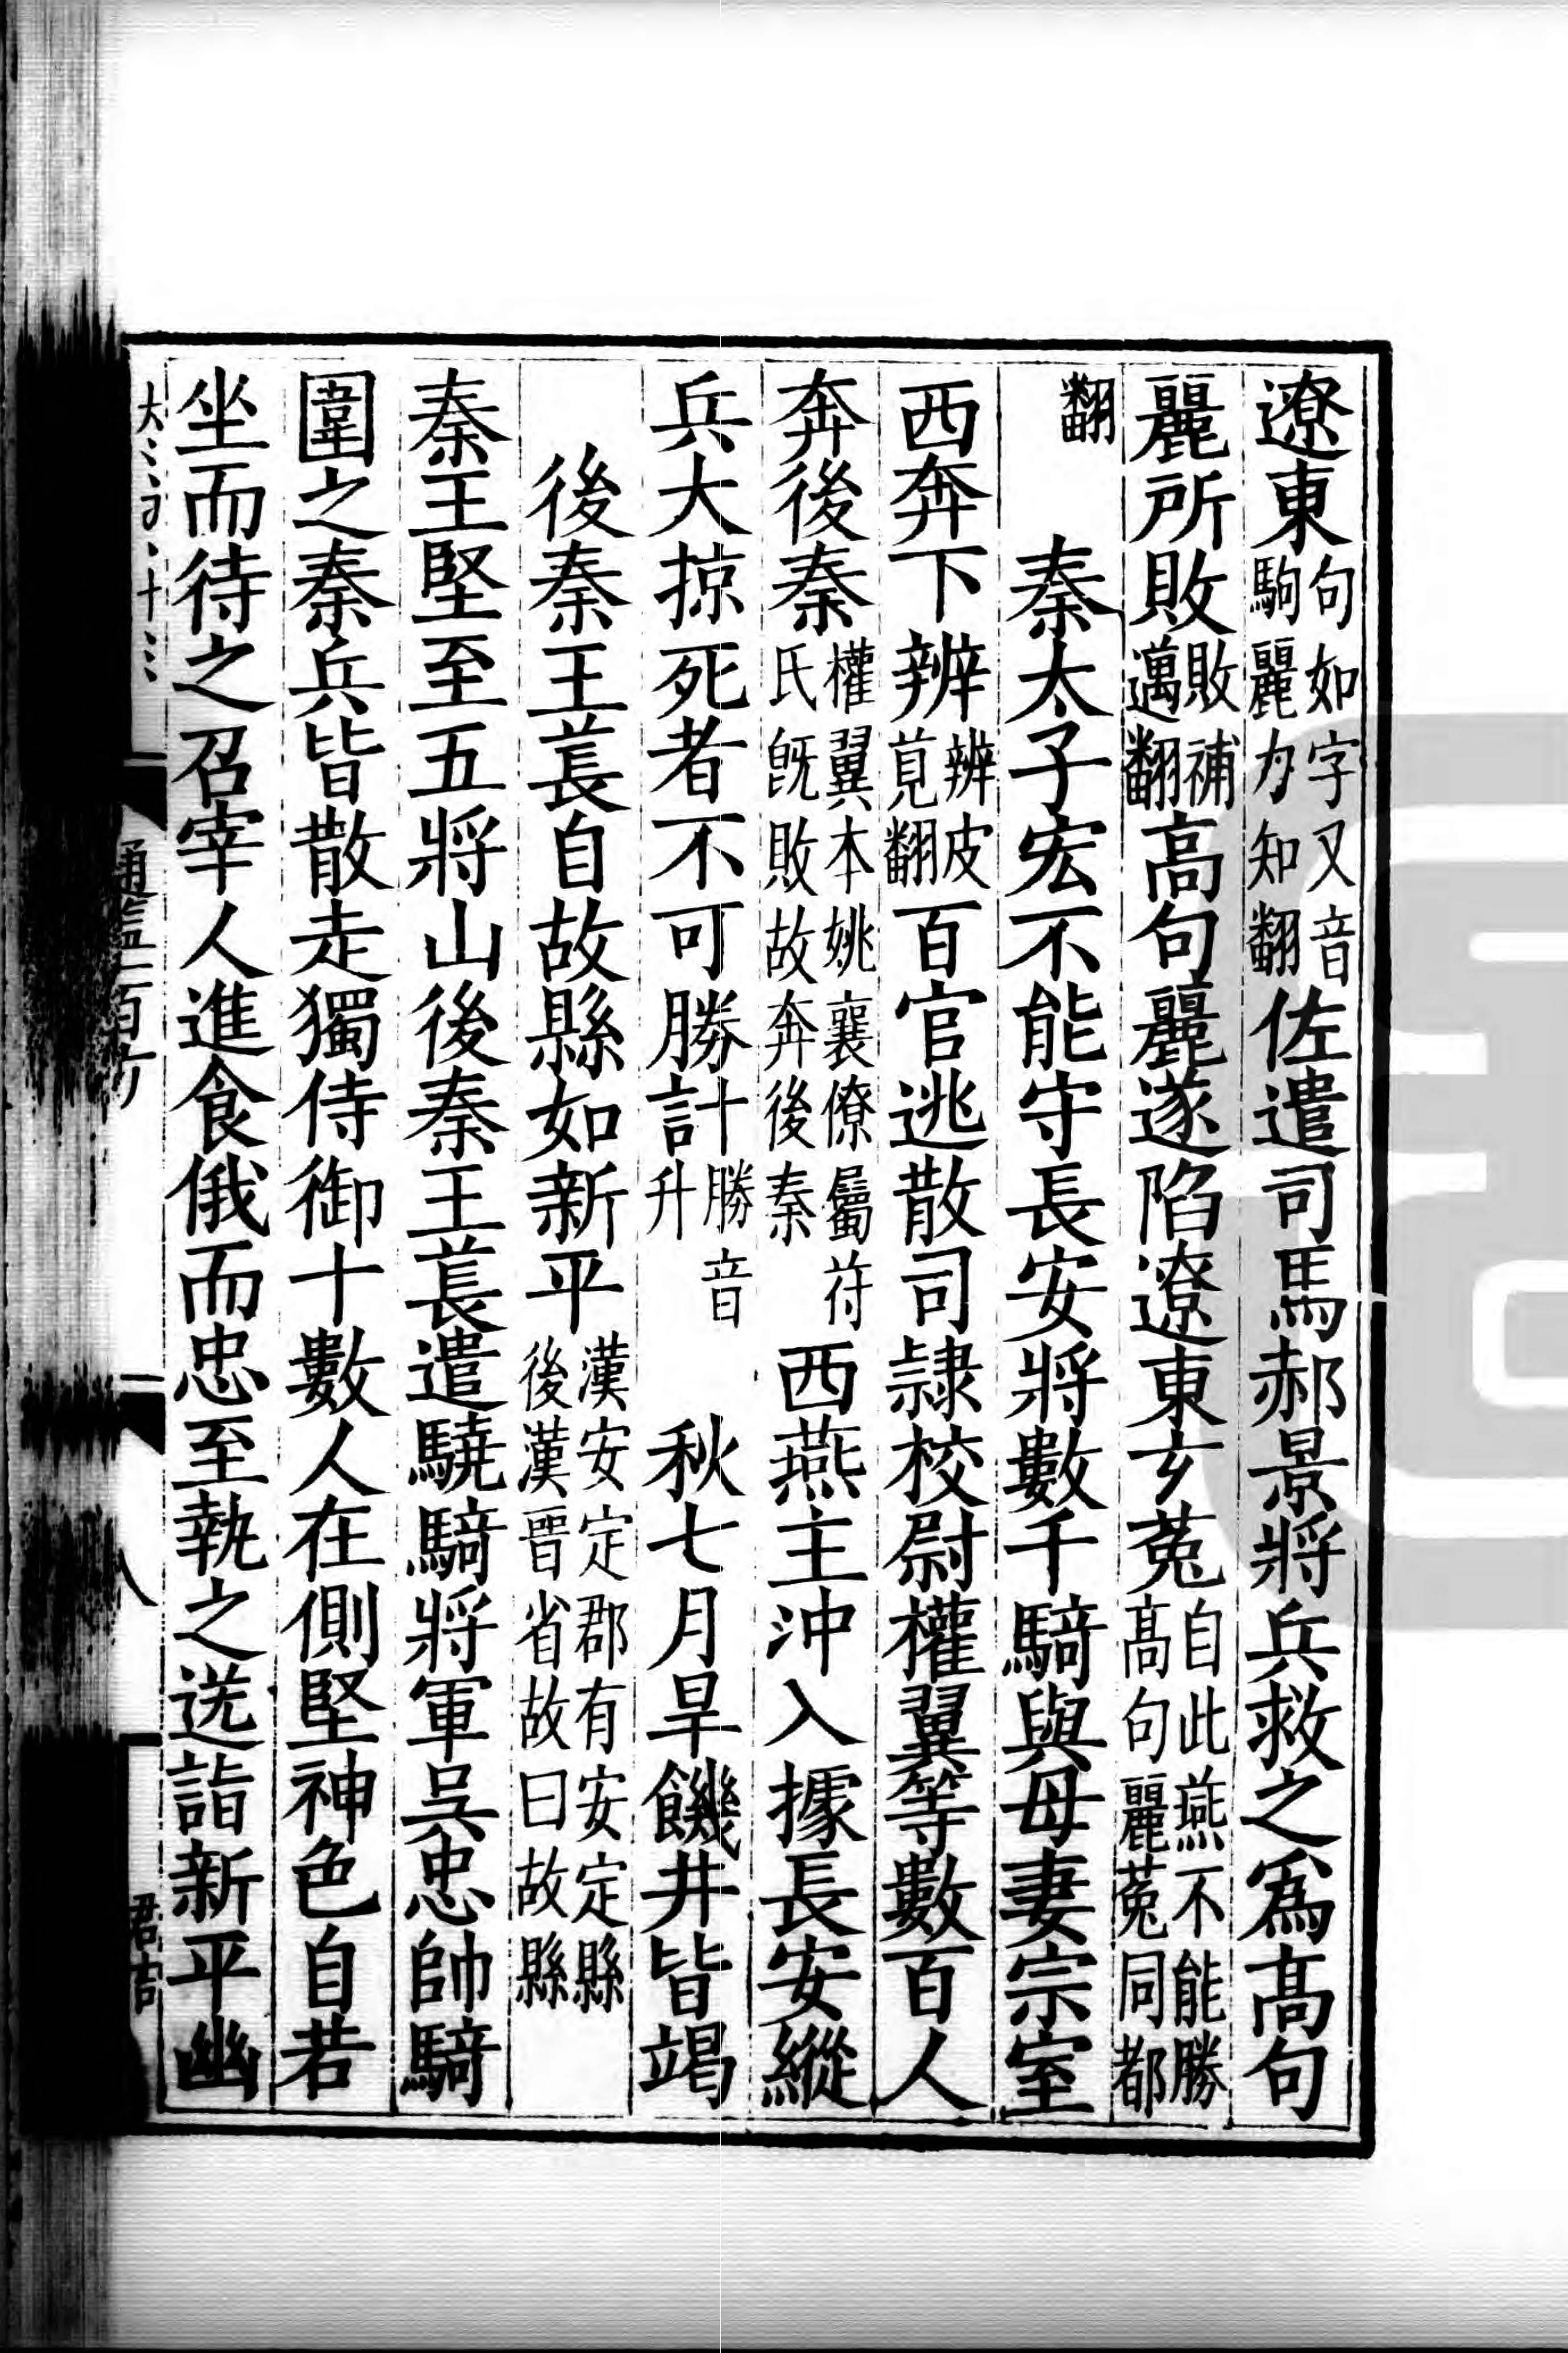 遼東句如字又音駒麗力知翻佐遣司馬郝景將兵救之爲高句
麗所敗敗補邁翻高句麗遂陷遼東玄菟自此燕不能勝高句麗菟同都
翻　秦太子宏不能守長安將數千騎與母妻宗室
西奔下辨辨皮莧翻百官逃散司隷校尉權翼等數百人
奔後秦權翼本姚襄僚屬苻氏旣敗故奔後秦西燕主沖入據長安縱
兵大掠死者不可勝計勝音升　秋七月旱饑井皆竭
後秦王萇自故縣如新平漢安定郡有安定縣後漢晉省故曰故縣
秦王堅至五將山後秦王萇遣驍騎將軍吳忠帥騎
圍之秦兵皆散走獨侍御十數人在側堅神色自若
坐而待之召宰人進食俄而忠至執之送詣新平幽
通鑑一百六
八
君吉